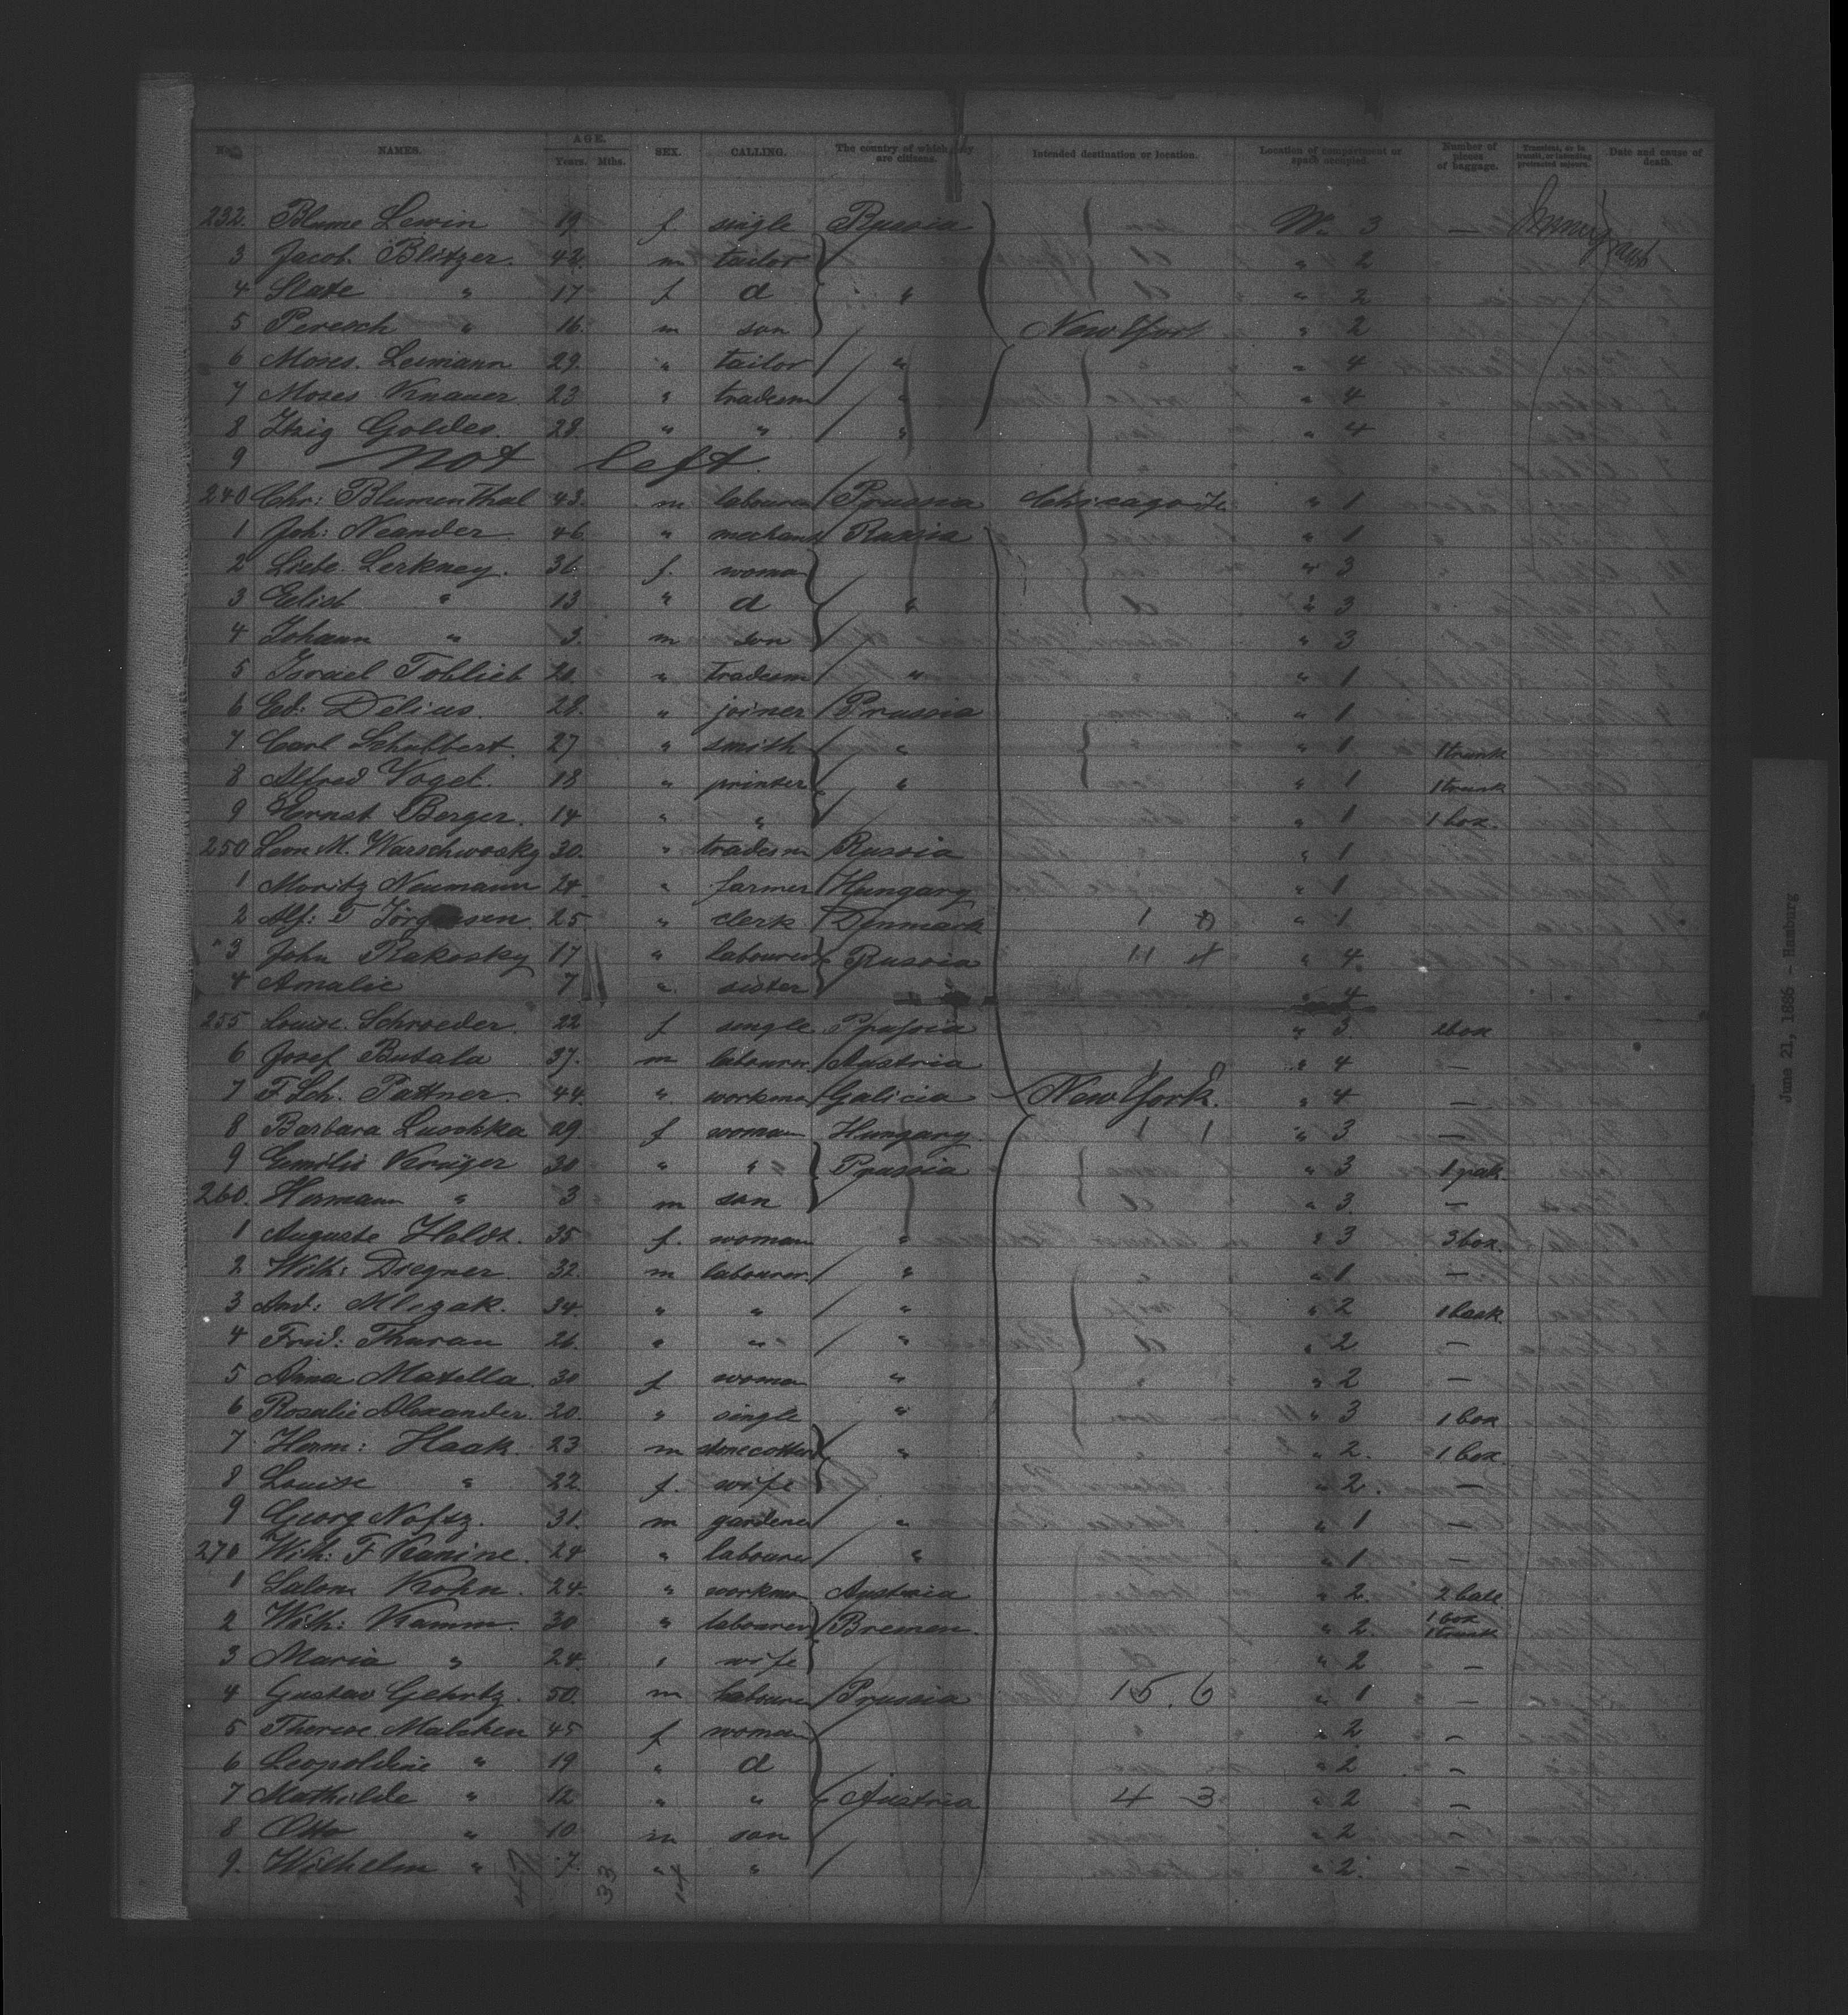 No. NAMES. AGE. Years. Mths. SEX. CALLING. The country of which they are citizens. Intended destination or location. Location of compartment or space occupied. Number of pieces of baggage. Transient, or in transit, or intending protracted sojourn. Date and cause of death.
232. Blume Lewin 19 f single Russia W. 3 — Immigrants
3 Jacob Blitzer 42. m tailor " 2
4 Slate " 17 f d " " 2
5 Peresch " 16. m son New York " 2
6 Moses Leimann 29. " tailor " " 4
7 Moses Knauer 23 " tradesm " " 4
8 Itzig Goldes. 28. " " " " 4
9 not left.
240 Chr: Blumenthal 43. m labourer Prussia Chicago " 1
1 Joh: Neander 46 " mechanic Russia " 1
2 Liebe Lerkney. 36. f. woman " 3
3 Elisb " 13 " d " " 3
4 Johann " 3. m son " 3
5 Israel Toblieb 20. " tradesm " " 1
6 Ed: Delius. 28. " joiner Prussia " 1
7 Carl Schubbert 27 " smith " " 1 1 trunk
8 Alfred Vogel. 18 " printer " " 1 1 trunk
9 Ernst Berger. 14 " " " 1 1 box.
250 M. Warschwosky 30. " tradesm Russia " 1
1 Moritz Neumann 24 " farmer Hungary " 1
2 Alf: T Jörgensen 25 " clerk Denmark " 1
3 John Rakosky 17 " labourer Russia " 4
4 Amalie 7 " sister " 4
255 Louise Schroeder. 22 f single Prussia " 3. 1 box
6 Josef Butala 37. m labourer Austria " 4 —
7 F. Sch. Pattner 44. " workman Galicia New York. " 4 —
8 Barbara Luschka 29 f woman Hungary. 1 1 " 3 —
9 Emilie Krüger 30 " " Prussia " 3 1 pak.
260. Hermann " 3 m son " 3 —
1 Auguste Holdt. 35 f. woman " " 3 3 box.
2 Wilh: Dregner. 32. m labourer " " 1 —
3 And: Mlczak. 34. " " " " 2 1 bask
4 Fried: Thurau 26. " " " " 2 —
5 Anna Matella. 30 f woman " " 2 —
6 Rosalie Alexander. 20. " single " " 3 1 box
7 Herm: Haak 23 m stonecotter " " 2. 1 box
8 Louise " 22. f. wife " 2. —
9 Georg Noftz. 31. m gardener " " 1 —
270 Wilh: F Kanine. 24 " labourer " " 1 —
1 Salom Kohn. 24. " workman Austria " 2. 2 bale
2 Wilh: Kamm. 30 " labourer Bremen. " 2. 1 box 1 trunk
3 Maria " 24. " wife " 2 —
4 Gustav Gehrtz. 50. m labourer Prussia 15. 6 " 1 —
5 Therese Malchen 45 f woman " 2 —
6 Leopoldine " 19 " d " 2 —
7 Mathilde " 12 " " Austria 4 3 " 2 —
8 Otto " 10. m son " 2 —
9. Wilhelm " 7. " " " 2. —
47 33 14
June 21, 1886 - Hamburg